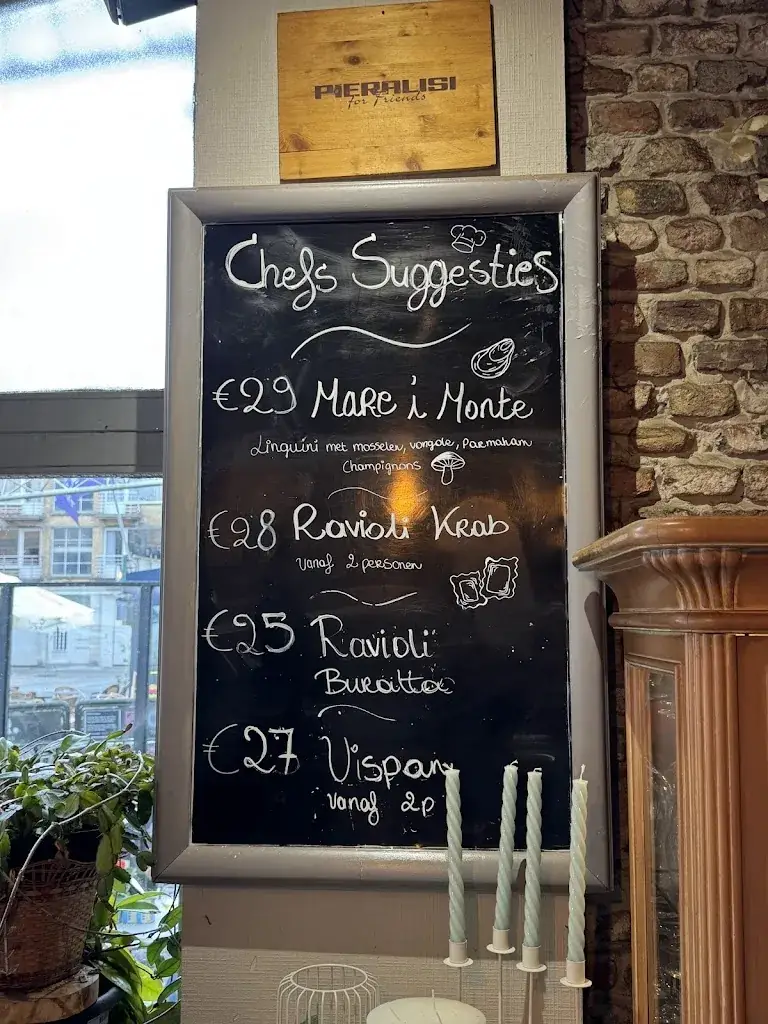 PIERALISI
for Friends
Chefs Suggesties
€29 Mare i Monte
Linguini met mosselen, vongole, Parmaham
Champignons
€28 Ravioli Krab
Vanaf 2 personen
€25 Ravioli
Buratta
€27 Vispan
vanaf 2p